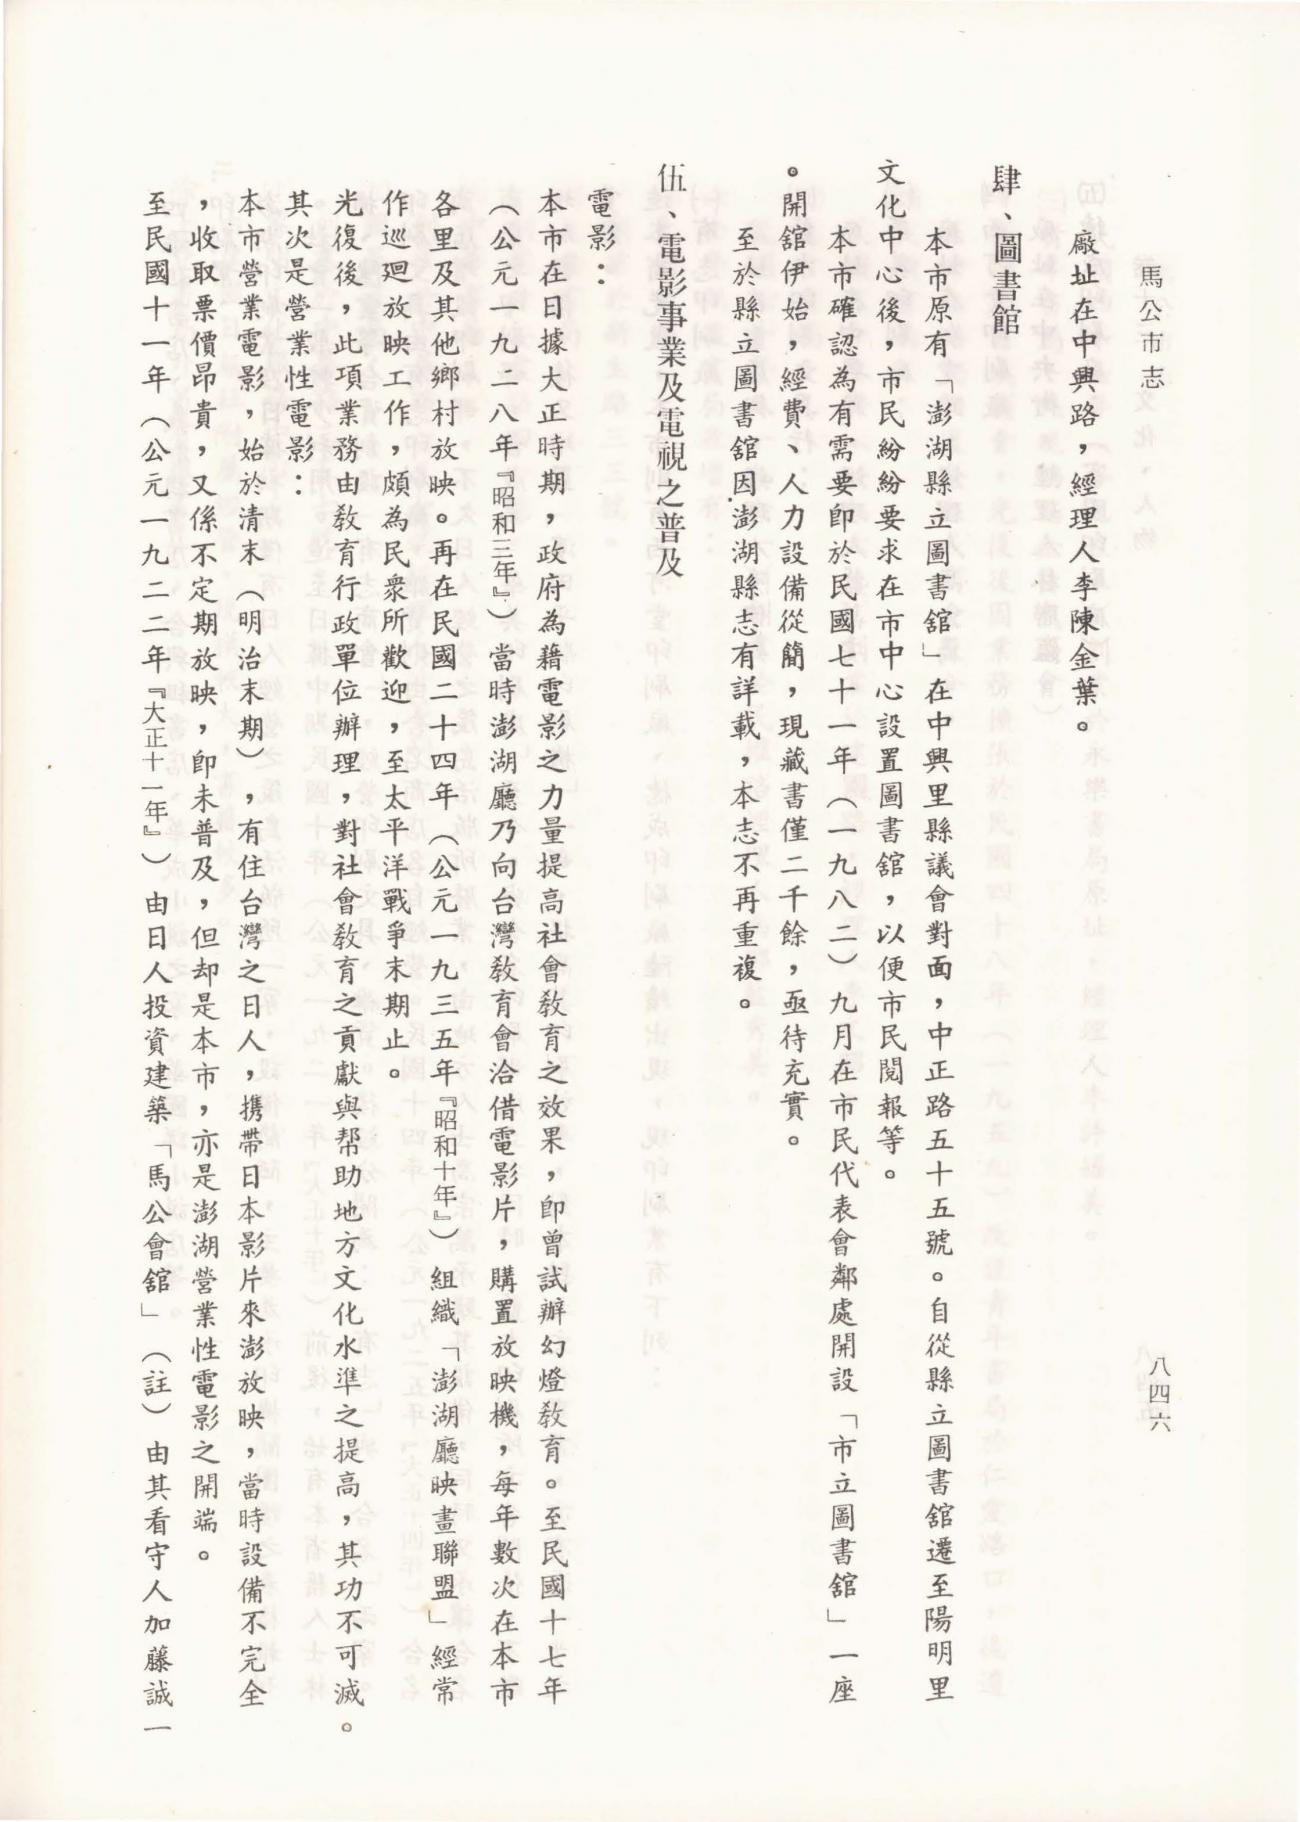 馬公市志
八四六
廠址在中興路，經理人李陳金葉。
肆、圖書館
本市原有「澎湖縣立圖書舘」在中興里縣議會對面，中正路五十五號。自從縣立圖書舘遷至陽明里
文化中心後，市民紛紛要求在市中心設置圖書舘，以便市民閱報等。
本市確認為有需要卽於民國七十一年（一九八二）九月在市民代表會鄰處開設「市立圖書舘」一座
。開舘伊始，經費、人力設備從簡，現藏書僅二千餘，亟待充實。
至於縣立圖書舘因澎湖縣志有詳載，本志不再重複。
伍、電影事業及電視之普及
電影：
本市在日據大正時期，政府為藉電影之力量提高社會敎育之效果，卽曾試辦幻燈敎育。至民國十七年
（公元一九二八年『昭和三年』）當時澎湖廳乃向台灣敎育會洽借電影片，購置放映機，每年數次在本市
各里及其他鄉村放映。再在民國二十四年（公元一九三五年『昭和十年』）組織「澎湖廳映畫聯盟」經常
作巡廻放映工作，頗為民衆所歡迎，至太平洋戰爭末期止。
光復後，此項業務由敎育行政單位辦理，對社會敎育之貢獻與帮助地方文化水準之提高，其功不可滅。
其次是營業性電影：
本市營業電影，始於清末（明治末期），有住台灣之日人，携帶日本影片來澎放映，當時設備不完全
，收取票價昂貴，又係不定期放映，卽未普及，但却是本市，亦是澎湖營業性電影之開端。
至民國十一年（公元一九二二年『大正十一年』）由日人投資建築「馬公會舘」（註）由其看守人加藤誠一